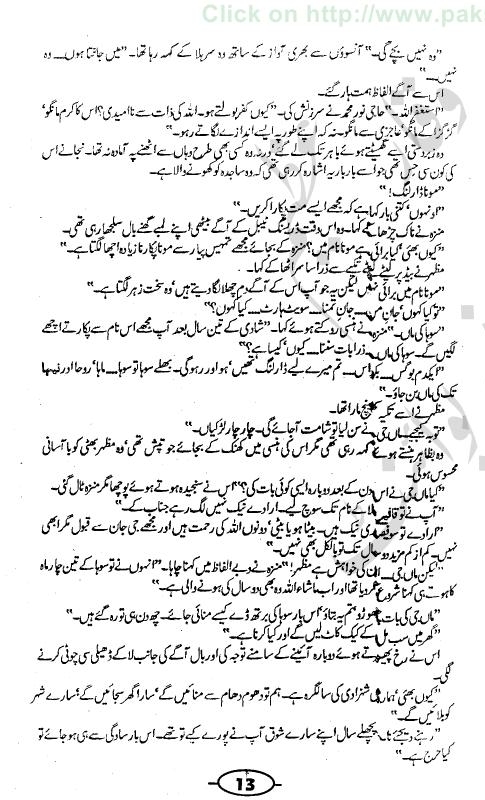 Click on http://www.pak
”وہ نہیں بچے گی۔“ آنسوؤں سے بھری آواز کے ساتھ وہ سر ہلا کے کہہ رہا تھا۔ ”میں جانتا ہوں.... وہ
نہیں...“
اس سے آگے الفاظ ہمت ہار گئے۔
”استغفر اللہ۔“ حاجی نور محمد نے سرزنش کی۔ ”کیوں کفر بولتے ہو۔ اللہ کی ذات سے ناامیدی؟ اس کا کرم مانگو‘
گڑ گڑا کے مانگو‘ عاجزی سے مانگو۔ نہ کہ اپنے طور پہ ایسے اندازے لگاتے رہو۔“
وہ زبردستی اسے گھسیٹتے ہوئے باہر تک لے گئے‘ ورنہ وہ کسی بھی طرح وہاں سے اٹھنے پہ آمادہ نہ تھا۔ نجانے اس
کی کون سی حس تھی جو اسے بار بار یہ اشارہ کر رہی تھی کہ وہ ساجدہ کو کھونے والا ہے۔
”مونا ڈارلنگ!“
”اونہوں‘ کتنی بار کہا ہے کہ مجھے ایسے مت پکارا کریں۔“
منزہ نے ناک چڑھا کے کہا۔ وہ اس وقت ڈریسنگ ٹیبل کے آگے بیٹھی اپنے لمبے گھنے بال سلجھا رہی تھی۔
”کیوں بھئی‘ کیا برائی ہے مونا نام میں؟ منزہ کے بجائے مجھے تمہیں پیار سے مونا پکارنا زیادہ اچھا لگتا ہے۔“
مظہر نے بیڈ پر لیٹے لیٹے تکیے سے ذرا سا سر اٹھا کے کہا۔
”مونا نام میں برائی نہیں لیکن یہ جو آپ اس کے آگے دم چھلا لگا دیتے ہیں‘ وہ سخت زہر لگتا ہے۔“
”تو کیا کہوں‘ جان من... جان تمنا... سویٹ ہارٹ... کیا کہوں؟“
”سوہا کی ماں۔“ منزہ نے ہنسی روکتے ہوئے کہا۔ ”شادی کے تین سال بعد آپ مجھے اس نام سے پکارتے اچھے
لگیں گے۔ سوہا کی ماں ذرا بات سننا... کیوں‘ کیسا ہے؟“
”ایکدم بوگس... تم میرے لیے ڈارلنگ تھیں‘ ہو اور رہو گی۔ بھلے سوہا تو سوہا... ماہا‘ روحا اور نیہا
تک کی ماں بن جاؤ۔“
مظہر نے اسے تکیہ کھینچ مارا تھا۔
”توبہ کیجیے‘ ماں جی نے سن لیا تو شامت آ جائے گی۔ چار چار لڑکیاں۔“
وہ بظاہر ہنستے ہوئے کہہ رہی تھی مگر اس کی ہنسی میں کھنک کے بجائے جو تپش تھی‘ وہ مظہر بھٹی کو با آسانی
محسوس ہوئی۔
”کیا ماں جی نے اس دن کے بعد دوبارہ ایسی کوئی بات کی؟“ اس نے سنجیدہ ہوتے ہوئے پوچھا مگر منزہ ٹال گئی۔
”آپ نے تو قافیے ملا کے نام تک سوچ لیے۔ ارادے نیک نہیں لگ رہے جناب کے۔“
”ارادے تو سو فیصدی نیک ہیں۔ بیٹا ہو یا بیٹی‘ دونوں اللہ کی رحمت ہیں اور مجھے جی جان سے قبول مگر ابھی
نہیں۔ کم از کم مزید دو سال تک تو بالکل بھی نہیں۔“
”لیکن ماں جی... ان کی خواہش ہے مظہر!“ منزہ نے دبے الفاظ میں کہنا چاہا۔ ”انہوں نے تو سوہا کے تین چار ماہ
کا ہوتے ہی کہنا شروع کر دیا تھا اور اب ماشاء اللہ وہ بھی دو سال کی ہونے والی ہے۔“
”ماں جی کی بات چھوڑو‘ تم یہ بتاؤ‘ اس بار سوہا کی برتھ ڈے کیسے منائی جائے۔ چھ دن ہی تو رہ گئے ہیں۔“
”گھر میں سب مل کے کیک کاٹ لیں گے اور کیا کرنا ہے۔“
اس نے رخ پھیرتے ہوئے دوبارہ آئینے کے سامنے توجہ کی اور بال آگے کی جانب لا کے ڈھیلی سی چوٹی کرنے
لگی۔
”کیوں بھئی‘ ہماری شہزادی کی سالگرہ ہے۔ ہم تو دھوم دھام سے منائیں گے‘ سارا گھر سجائیں گے‘ سارے شہر
کو بلائیں گے۔“
”رہنے دیجیے‘ پچھلے سال اپنے سارے شوق آپ نے پورے کیے تو تھے۔ اس بار سادگی سے ہی ہو جائے تو
کیا حرج ہے۔“
13